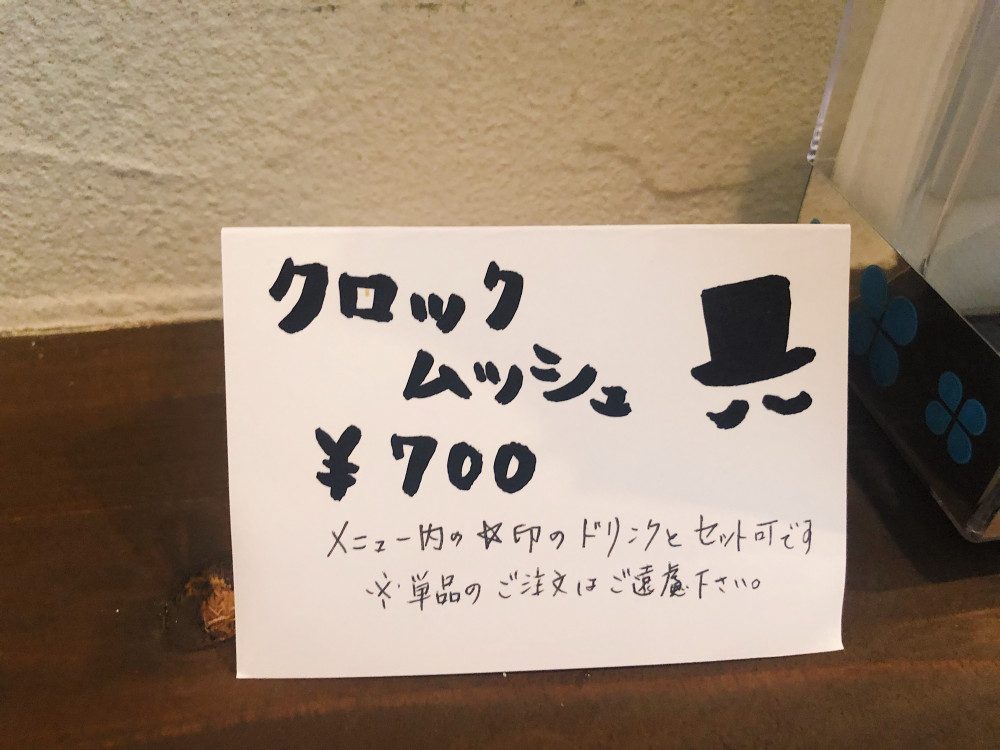 クロック
ムッシュ
¥700
メニュー内の☆印のドリンクとセット可です
※単品のご注文はご遠慮下さい。